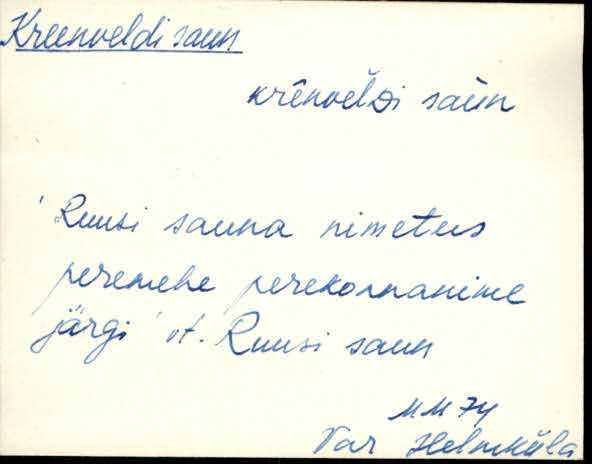 Kreenveldi saun
krēnvělDi saun
'Ruusi sauna nimetus
peremehe perekonnanime
järgi' vt. Ruusi saun
MM 74
Var Helmküla